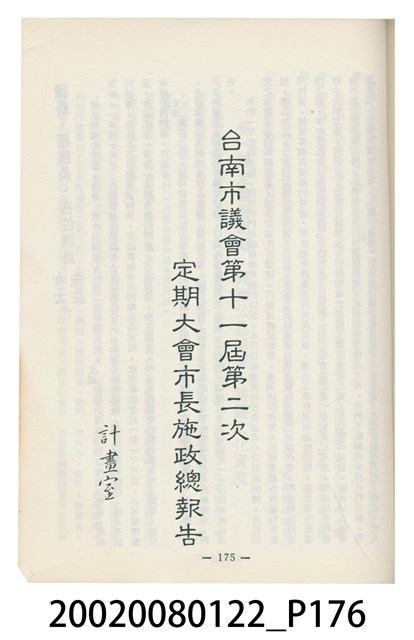 台南市議會第十一屆第二次
定期大會市長施政總報告
計畫室
— 175 —
20020080122_P176